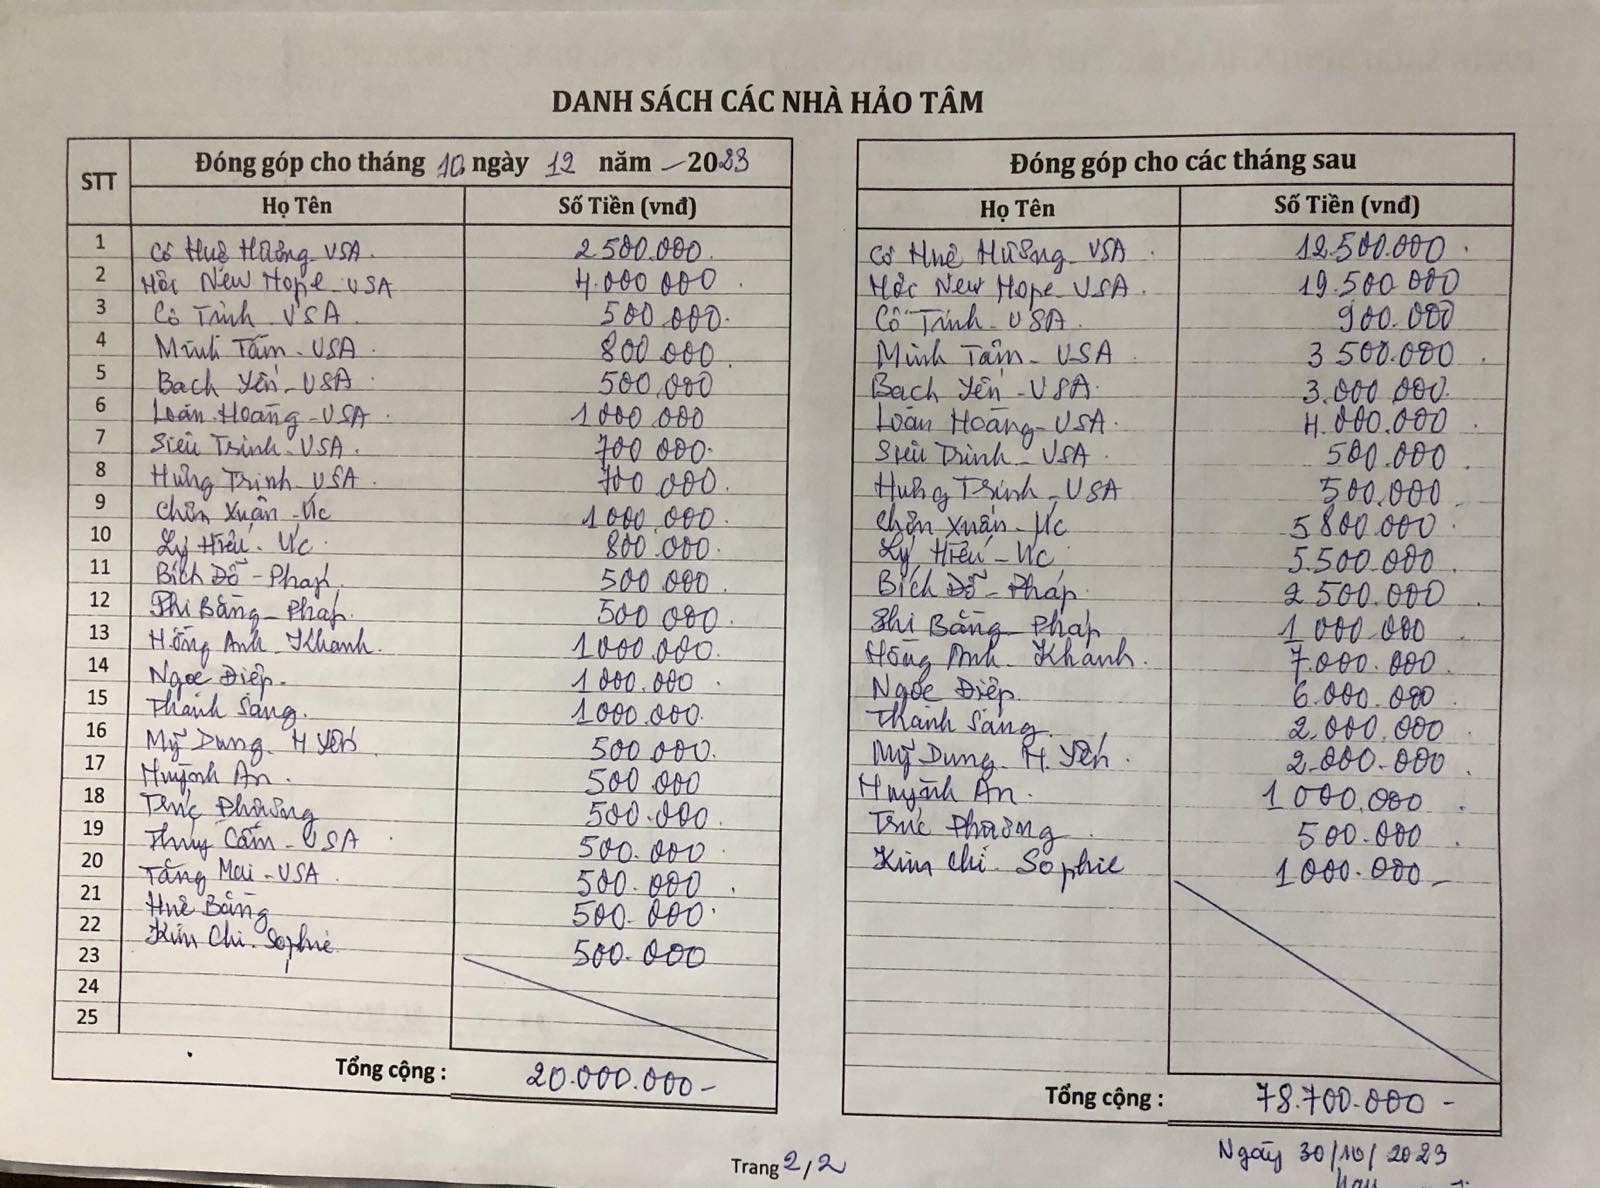 DANH SÁCH CÁC NHÀ HẢO TÂM
STT
Đóng góp cho tháng 10 ngày 12 năm - 2023
Họ Tên
Số Tiền (vnđ)
1 Cô Huê Hường - USA. 2.500.000.
2 Hội New Hope - USA 4.000.000
3 Cô Trinh USA. 500.000.
4 Minh Tâm - USA. 800.000
5 Bạch Yến - USA 500.000
6 Loan Hoàng - USA 1000.000
7 Siêu Trinh - USA. 700 000.
8 Hưng Trịnh - USA 700 000.
9 Chôn Xuân - Úc 1000.000.
10 Lý Hiếu - Úc. 800.000.
11 Bích Đỗ - Pháp 500.000.
12 Phi Bằng - Pháp. 500.000.
13 Hồng Anh - Khanh. 1000.000.
14 Ngọc Điệp. 1000.000
15 Thanh Sang. 1000.000.
16 Mỹ Dung. H Yến 500.000.
17 Huỳnh An. 500.000
18 Trúc Phương 500.000.
19 Thuy Cẩm - USA 500.000
20 Tăng Mai - USA 500.000
21 Huê Bằng 500.000.
22 Kim Chi. Sophie 500.000
23
24
25
Tổng cộng : 20.000.000-
Đóng góp cho các tháng sau
Họ Tên
Số Tiền (vnđ)
Cô Huê Hường - USA 12.500.000.
Hội New Hope - USA. 19.500.000
Cô Trinh - USA. 900.000
Minh Tâm - USA 3.500.000
Bạch Yến - USA. 3.000.000.
Loan Hoàng - USA. 4.000.000
Siêu Trinh - USA 500.000
Hưng Trịnh - USA 500.000
Chôn Xuân - Úc 5.800.000
Lý Hiếu - Úc 5.500.000
Bích Đỗ - Pháp 2.500.000
Phi Bằng - Pháp 1.000.000
Hồng Anh - Khanh. 7.000.000
Ngọc Điệp. 6.000.000
Thanh Sang. 2.000.000
Mỹ Dung. H. Yến. 2.000.000
Huỳnh An. 1000.000
Trúc Phương 500.000
Kim Chi - Sophie 1000.000-
Tổng cộng : 78.700.000 -
Trang 2/2
Ngày 30/10/2023